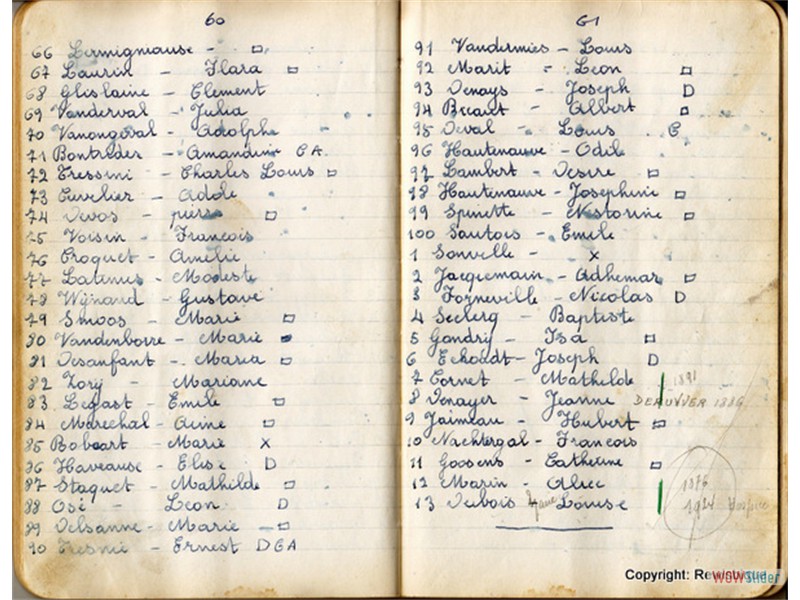 60
66 Lermigniause - □
67 Laurin - Flara □
68 Ghislaine - Clement
69 Vanderval - Julia
70 Vanongeval - Adolphe
71 Bontreder - Amandine C A.
72 Tressini - Charles Louis □
73 Cuvelier - Adole
74 Devos - pierre □
75 Voisin - Francois
76 Croquet - Amelie
77 Latinus - Modeste
78 Wijnand - Gustave
79 Smoos - Marie □
80 Vandenborre - Marie
81 Desanfant - Maria □
82 Lory - Mariane
83 Legast - Emile □
84 Marechal - Aline □
85 Bobeart - Marie X
86 Haveause - Elise D
87 Staquet - Mathilde □
88 Osé - Leon D
89 Delsanne - Marie - □
90 Fresnie - Ernest D C A
61
91 Vandermies - Louis
92 Marit - Leon □
93 Denays - Joseph D
94 Becaut - Albert □
95 Deval - Louis C
96 Hautenauve - Odile
97 Lambert - Desire □
98 Hautenauve - Josephine □
99 Spinette - Nestorine □
100 Sautois - Emile
1 Sonville - X
2 Jacqemain - Adhemar □
3 Forneville - Nicolas D
4 Leclerg - Baptiste
5 Gondry - Isa □
6 Echoudt - Joseph D
7 Cornet - Mathilde 1891
8 Denayer - Jeanne DERUYVER 1886
9 Jaimeau - Hubert □
10 Nachtergal - Francois
11 Goosens - Catherine □
12 Marin - Alice 1876
13 Dubois Louise 1924 Hospice
Copyright:
WOWSlider